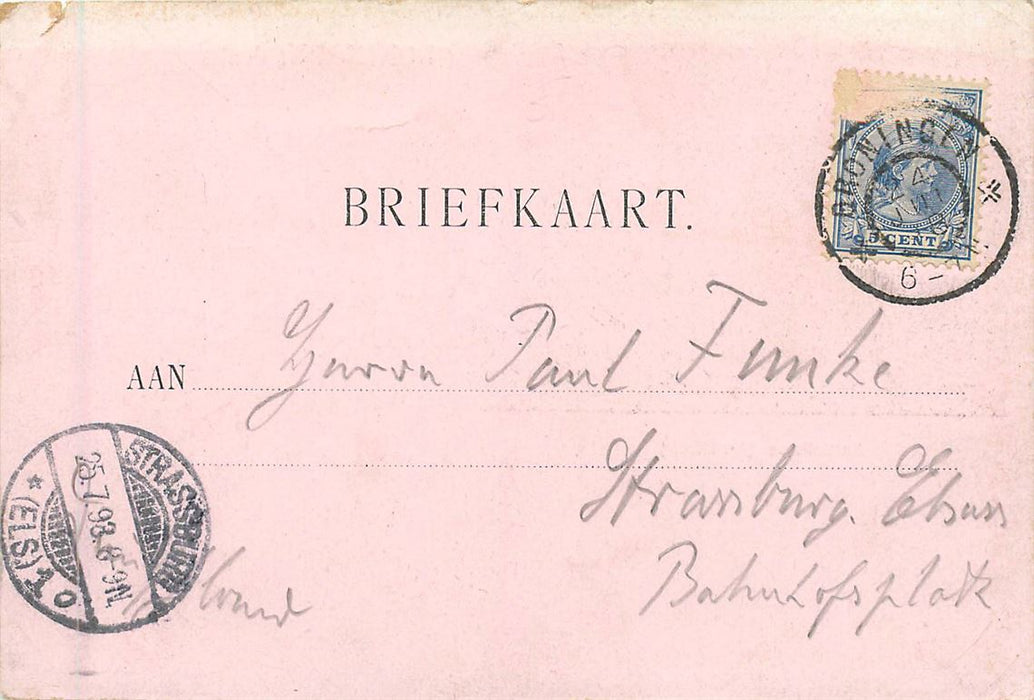 BRIEFKAART.
GRONINGEN
6 -
5 CENT
AAN Herrn Paul Funke
Strassburg. Elsass
Bahnhofsplatz
STRASSBURG
(ELS) 1
25.7.98. 8-9N.